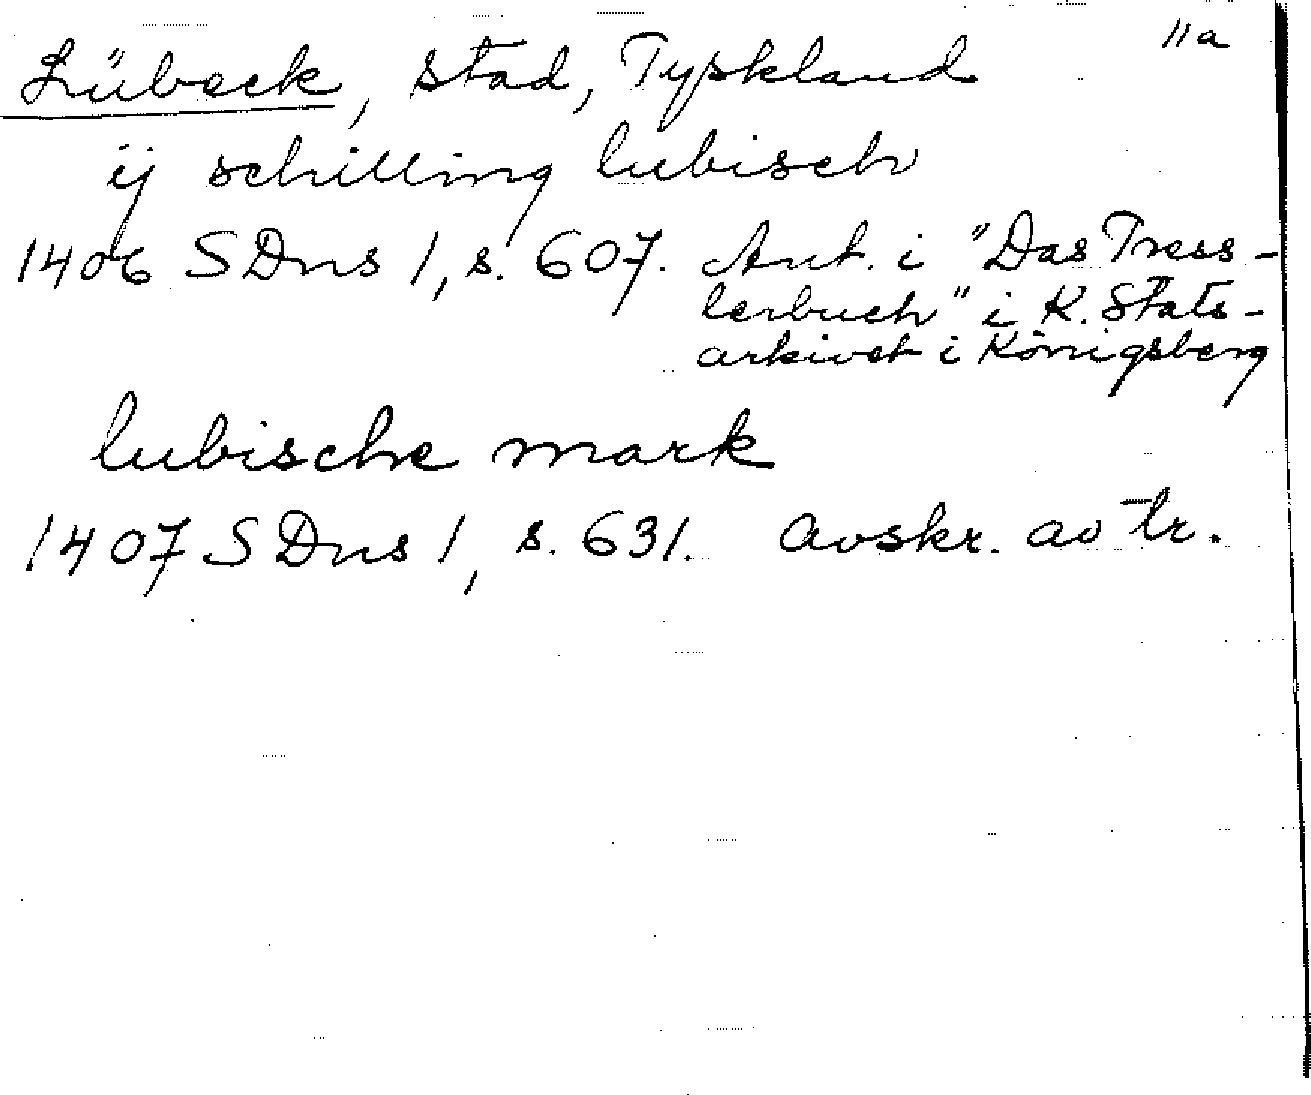 11a
Lübeck, stad, Tyskland
ij schilling lubisch
1406 SDns 1, s. 607. Ant. i "Das Tress-
lerbuch" i K. Stats-
arkivet i Königsberg
lubische mark
1407 SDns 1, s. 631. avskr. av tr.